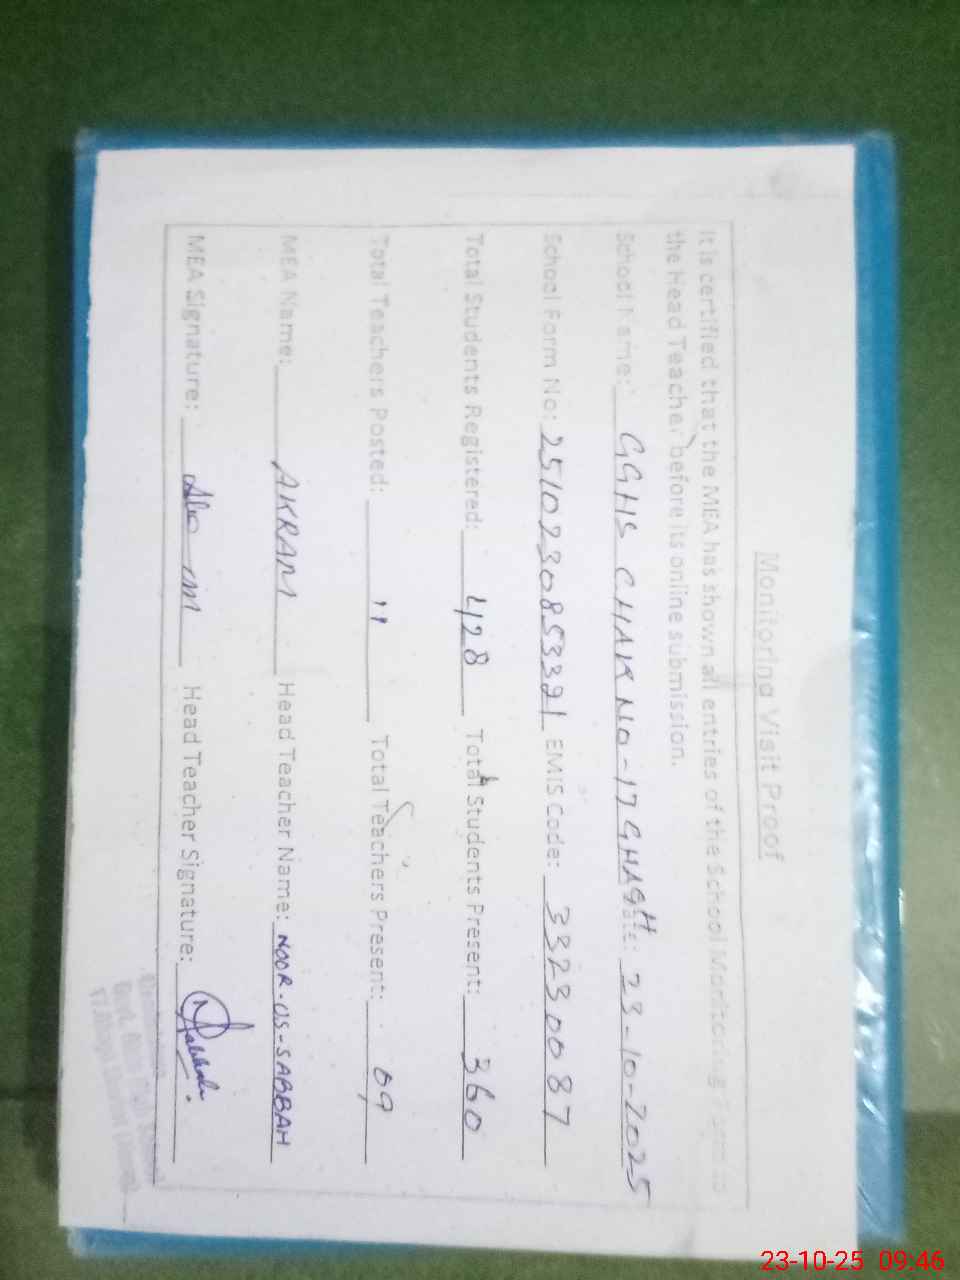 Monitoring Visit Proof
It is certified that the MEA has shown all entries of the School Monitoring Form to
the Head Teacher before its online submission.
School Name: GGHS CHAK NO-17 GHAGH Date: 23-10-2025
School Form No: 2510230853321 EMIS Code: 33230087
Total Students Registered: 428 Total Students Present: 360
Total Teachers Posted: 11 Total Teachers Present: 09
MEA Name: AKRAM Head Teacher Name: NOOR-US-SABBAH
MEA Signature: Head Teacher Signature:
23-10-25 09:46